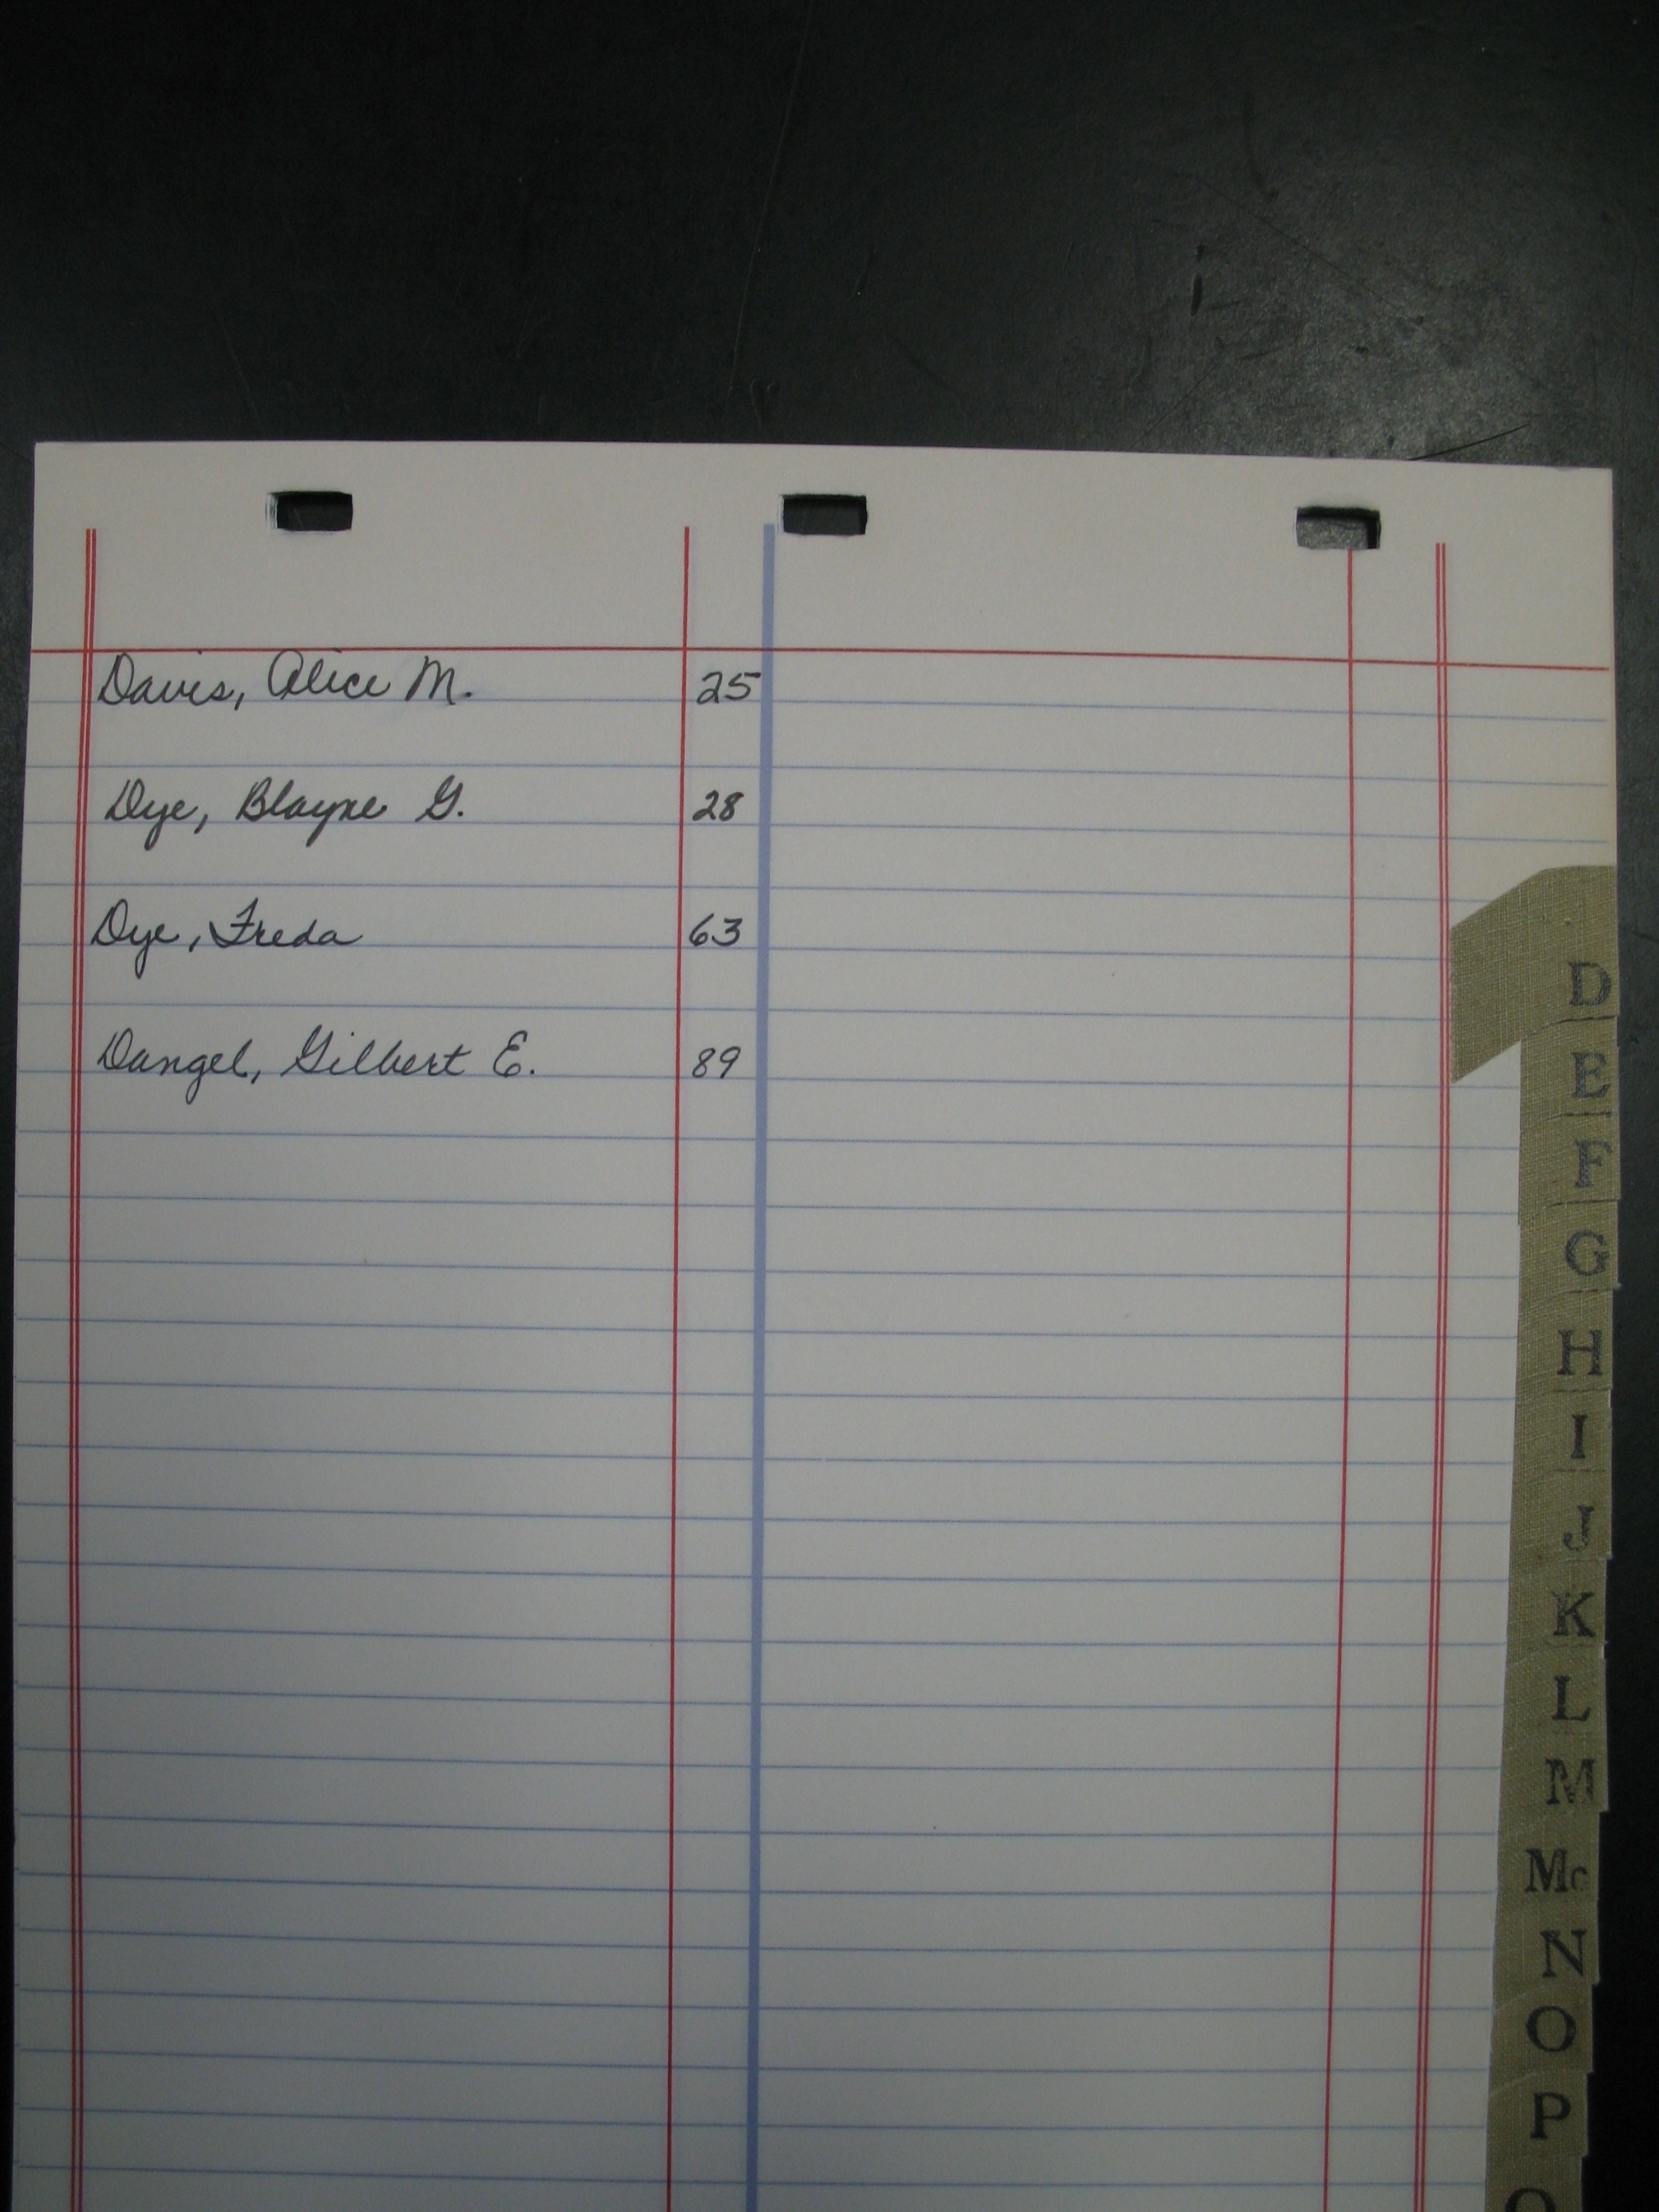 Davis, Alice M. 25
Dye, Blayne G. 28
Dye, Freda 63
Dangel, Gilbert E. 89
D
E
F
G
H
I
J
K
L
M
Mc
N
O
P